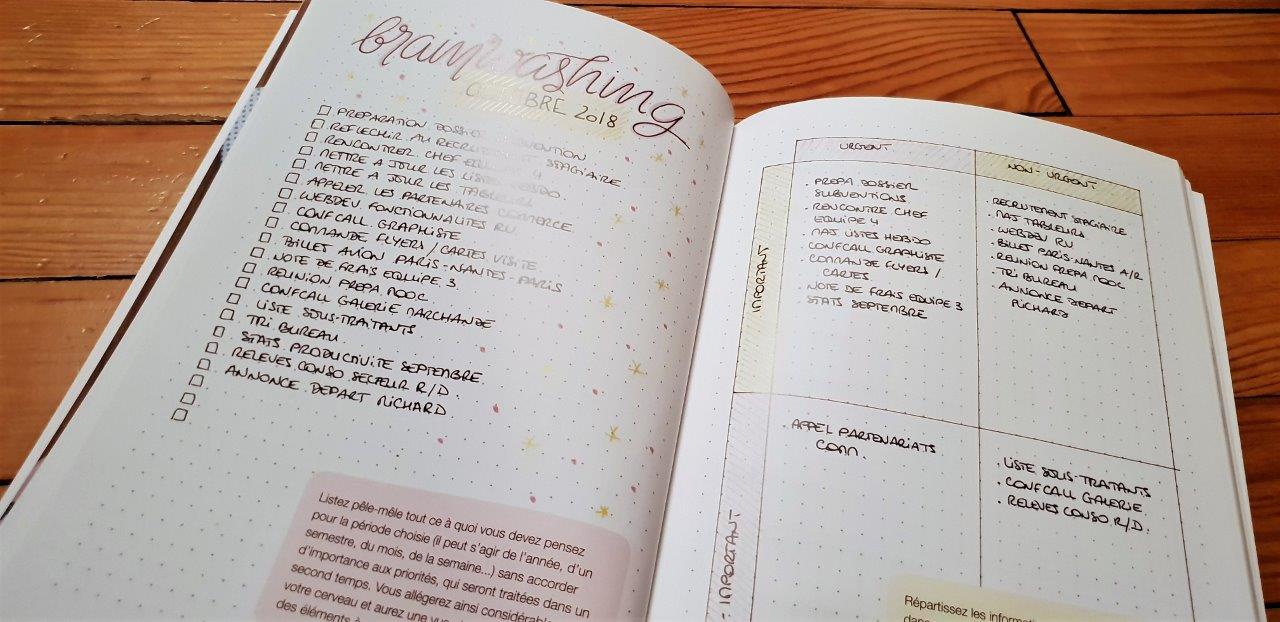 brainwashing
BRE 2018
□ PREPARATION DOSSIER SUBVENTION
□ REFLECHIR AU RECRUTEMENT STAGIAIRE
□ RENCONTRER CHEF EQUIPE 4
□ METTRE A JOUR LES LISTES HEBDO
□ METTRE A JOUR LES TABLEURS
□ APPELER LES PARTENAIRES COMMERCE
□ WEBDEV. FONCTIONNALITES RU
□ CONFCALL GRAPHISTE
□ COMMANDE FLYERS / CARTES VISITE
□ BILLET AVION PARIS-NANTES-PARIS
□ NOTE DE FRAIS EQUIPE 3
□ REUNION PREPA MOOC
□ CONFCALL GALERIE MARCHANDE
□ LISTE SOUS-TRAITANTS
□ TRI BUREAU
□ STATS PRODUCTIVITE SEPTEMBRE
□ RELEVES CONSO SECTEUR R/D.
□ ANNONCE DEPART RICHARD
□
□
Listez pêle-mêle tout ce à quoi vous devez pensez
pour la période choisie (il peut s'agir de l'année, d'un
semestre, du mois, de la semaine...) sans accorder
d'importance aux priorités, qui seront traitées dans un
second temps. Vous allégerez ainsi
votre cerveau et aurez une
des éléments
URGENT
NON-URGENT
IMPORTANT
. PREPA DOSSIER
SUBVENTIONS
. RENCONTRE CHEF
EQUIPE 4
. MAJ LISTES HEBDO
. CONFCALL GRAPHISTE
. COMMANDE FLYERS /
CARTES
. NOTE DE FRAIS EQUIPE 3
. STATS SEPTEMBRE
. RECRUTEMENT STAGIAIRE
. MAJ TABLEURS
. WEBDEV RU
. BILLET PARIS-NANTES A/R
. REUNION PREPA MOOC
. TRI BUREAU
. ANNONCE DEPART
RICHARD
- IMPORTANT
. APPEL PARTENARIATS
COMM.
. LISTE SOUS-TRAITANTS
. CONFCALL GALERIE
. RELEVES CONSO R/D.
Répartissez les